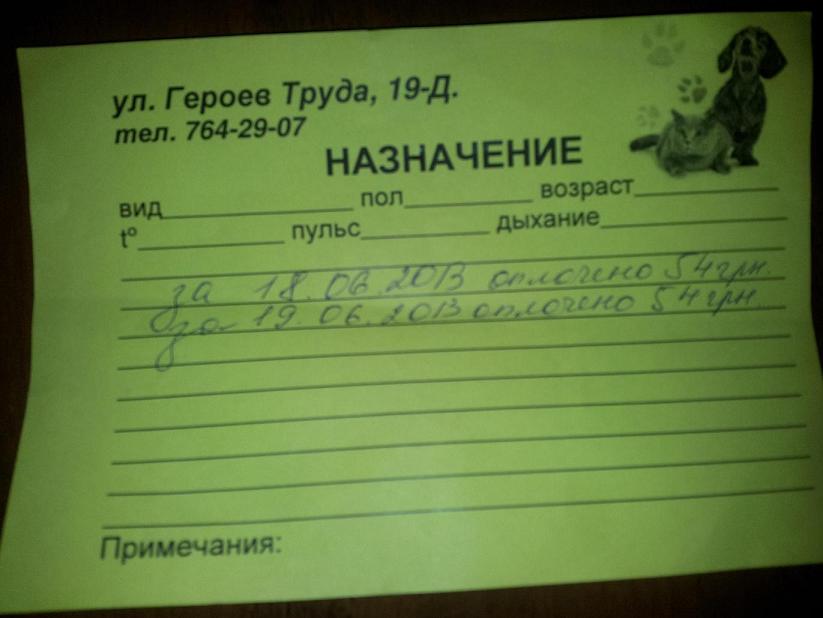 ул. Героев Труда, 19-Д.
тел. 764-29-07
НАЗНАЧЕНИЕ
вид пол возраст
t° пульс дыхание
за 18.06.2013 оплочено 54 грн.
за 19.06.2013 оплочено 54 грн.
Примечания: